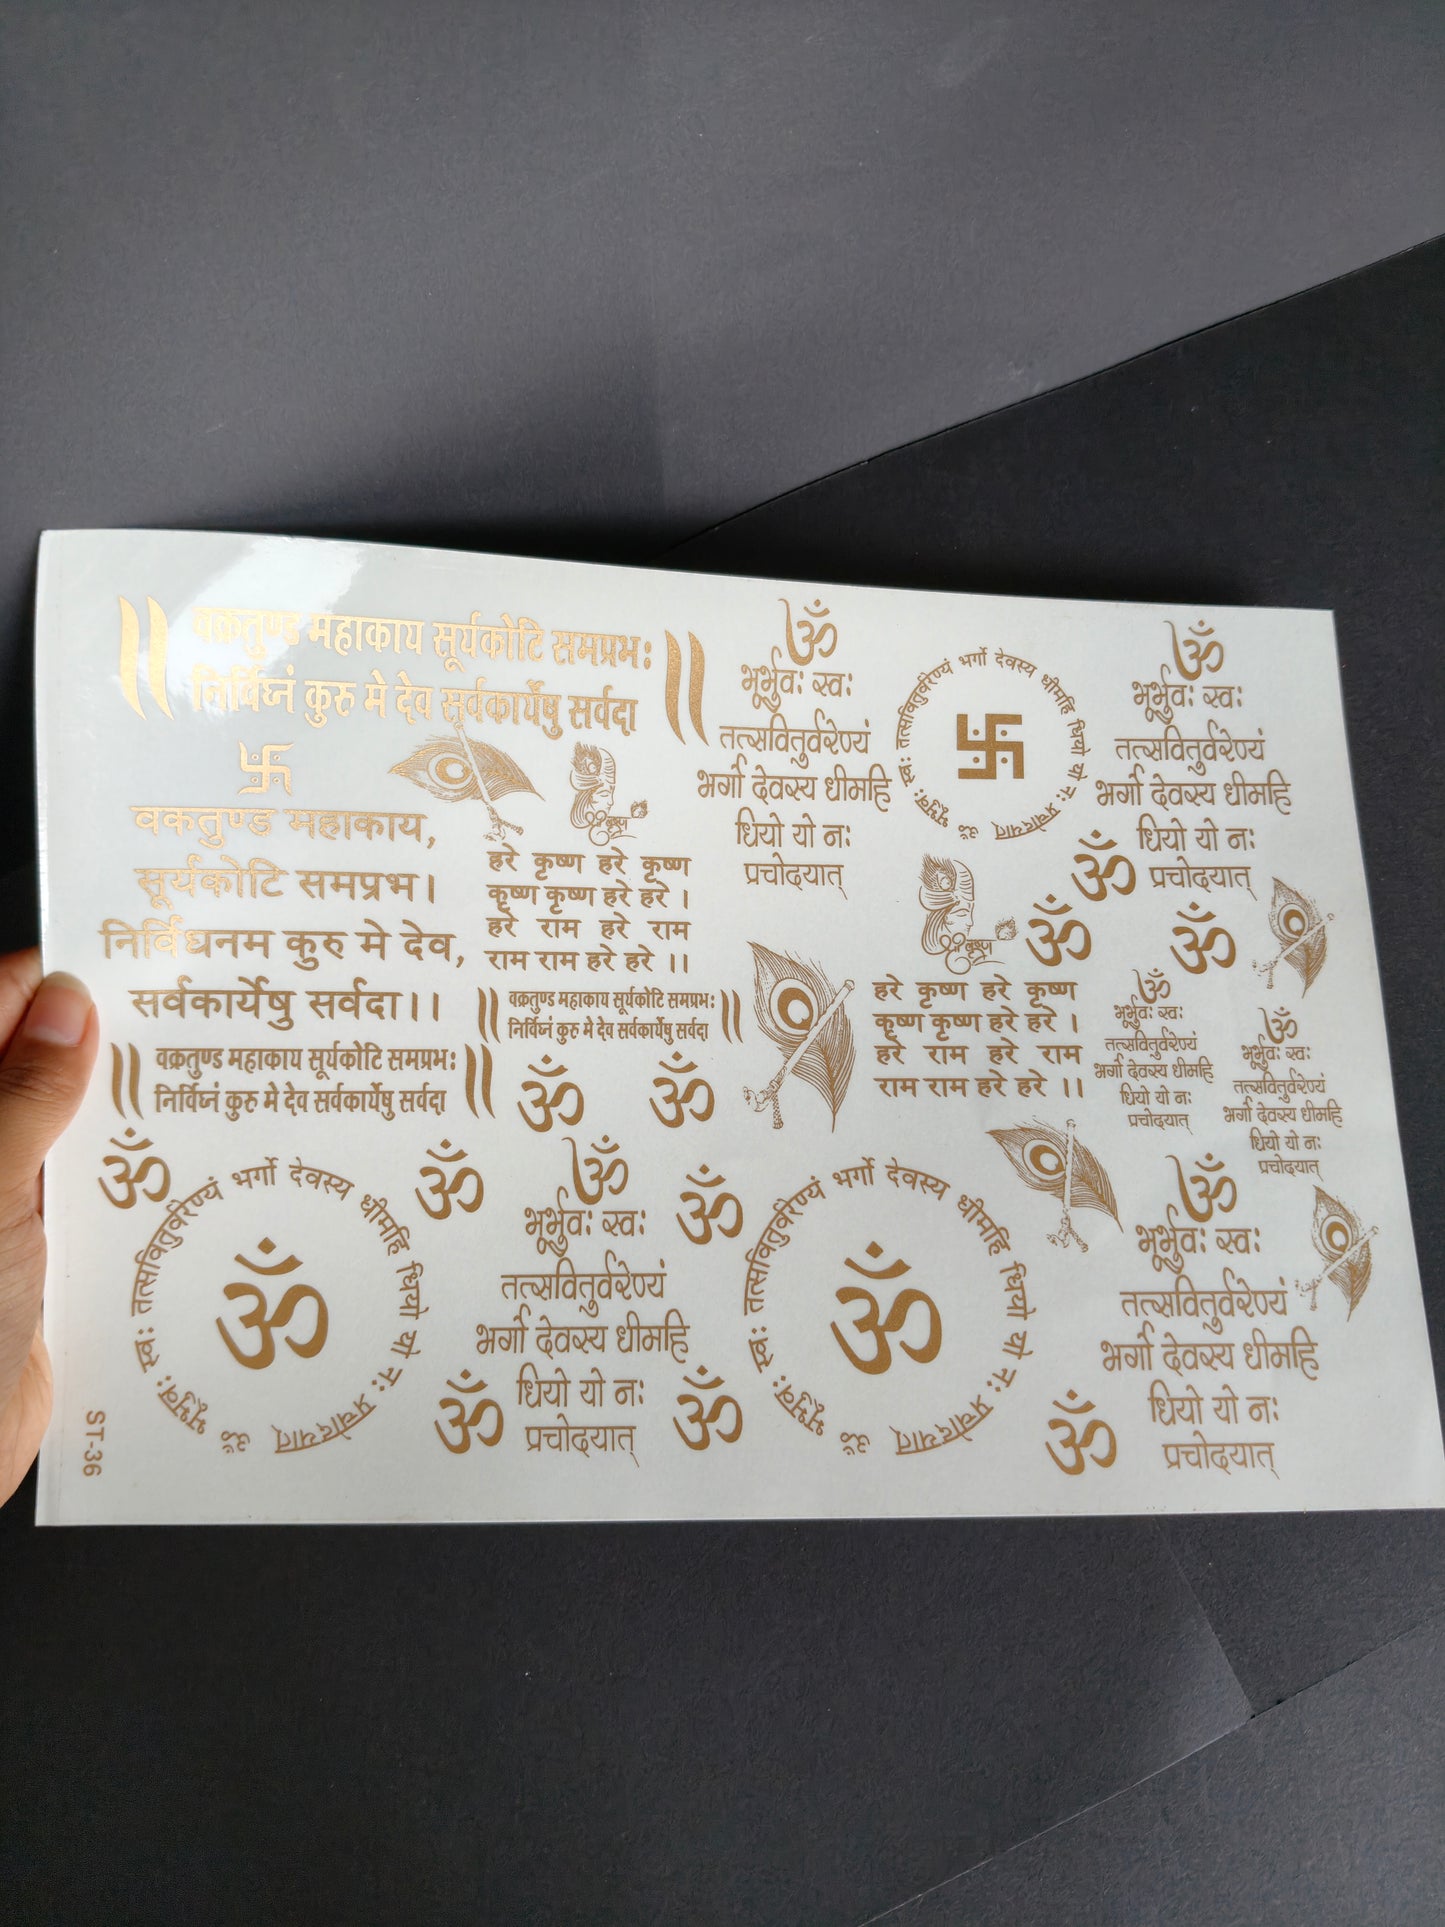 || वक्रतुण्ड महाकाय सूर्यकोटि समप्रभः
निर्विघ्नं कुरु मे देव सर्वकार्येषु सर्वदा ||
वकतुण्ड महाकाय,
सूर्यकोटि समप्रभ।
निर्विधनम कुरु मे देव,
सर्वकार्येषु सर्वदा।।
|| वक्रतुण्ड महाकाय सूर्यकोटि समप्रभः
निर्विघ्नं कुरु मे देव सर्वकार्येषु सर्वदा ||
श्री कृष्ण
हरे कृष्ण हरे कृष्ण
कृष्ण कृष्ण हरे हरे ।
हरे राम हरे राम
राम राम हरे हरे ।।
|| वक्रतुण्ड महाकाय सूर्यकोटि समप्रभः
निर्विघ्नं कुरु मे देव सर्वकार्येषु सर्वदा ||
ॐ
ॐ
ॐ
भूर्भुवः स्वः
तत्सवितुर्वरेण्यं
भर्गो देवस्य धीमहि
धियो यो नः
प्रचोदयात्
ॐ भूर्भुवः स्वः तत्सवितुर्वरेण्यं भर्गो देवस्य धीमहि धियो यो नः प्रचोदयात्
ॐ
भूर्भुवः स्वः
तत्सवितुर्वरेण्यं
भर्गो देवस्य धीमहि
धियो यो नः
प्रचोदयात्
ॐ
ॐ
ॐ
श्री कृष्ण
हरे कृष्ण हरे कृष्ण
कृष्ण कृष्ण हरे हरे ।
हरे राम हरे राम
राम राम हरे हरे ।।
ॐ
भूर्भुवः स्वः
तत्सवितुर्वरेण्यं
भर्गो देवस्य धीमहि
धियो यो नः
प्रचोदयात्
ॐ
भूर्भुवः स्वः
तत्सवितुर्वरेण्यं
भर्गो देवस्य धीमहि
धियो यो नः
प्रचोदयात्
ॐ
ॐ
ॐ भूर्भुवः स्वः तत्सवितुर्वरेण्यं भर्गो देवस्य धीमहि धियो यो नः प्रचोदयात्
ॐ
ॐ
भूर्भुवः स्वः
तत्सवितुर्वरेण्यं
भर्गो देवस्य धीमहि
धियो यो नः
प्रचोदयात्
ॐ
ॐ
ॐ
ॐ भूर्भुवः स्वः तत्सवितुर्वरेण्यं भर्गो देवस्य धीमहि धियो यो नः प्रचोदयात्
ॐ
ॐ
भूर्भुवः स्वः
तत्सवितुर्वरेण्यं
भर्गो देवस्य धीमहि
धियो यो नः
प्रचोदयात्
ॐ
ST-36